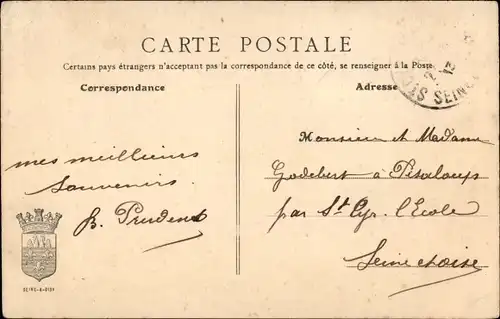 CARTE POSTALE
Certains pays étrangers n'acceptant pas la correspondance de ce côté, se renseigner à la Poste
Correspondance
Adresse
SEINE
mes meilleurs
souvenirs
B. Prudent
Monsieur et Madame
Godebert à Pissaloup
par St Cyr. l'Ecole
Seine et oise